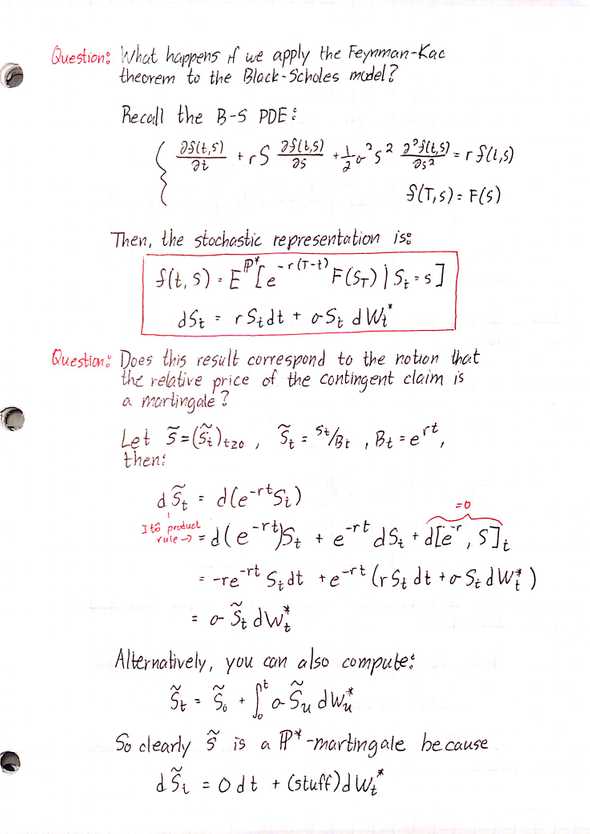 Question: What happens if we apply the Feynman-Kac
theorem to the Black-Scholes model?
Recall the B-S PDE:
{ ∂f(t,s)/∂t + rS ∂f(t,s)/∂s + 1/2 σ² s² ∂²f(t,s)/∂s² = r f(t,s)
f(T,s) = F(s)
Then, the stochastic representation is:
f(t,s) = E^ℙ* [e^-r(T-t) F(S_T) | S_t = s]
dS_t = rS_t dt + σS_t dW_t*
Question: Does this result correspond to the notion that
the relative price of the contingent claim is
a martingale?
Let S̃ = (S̃_t)_t≥0 , S̃_t = S_t/B_t , B_t = e^rt,
then:
dS̃_t = d(e^-rt S_t)
=0
Itô product
rule → = d(e^-rt)S_t + e^-rt dS_t + d[e^-r, S]_t
= -re^-rt S_t dt + e^-rt (rS_t dt + σS_t dW_t*)
= σ S̃_t dW_t*
Alternatively, you can also compute:
S̃_t = S̃_0 + ∫_0^t σ S̃_u dW_u*
So clearly S̃ is a ℙ*-martingale because
dS̃_t = 0 dt + (stuff) dW_t*